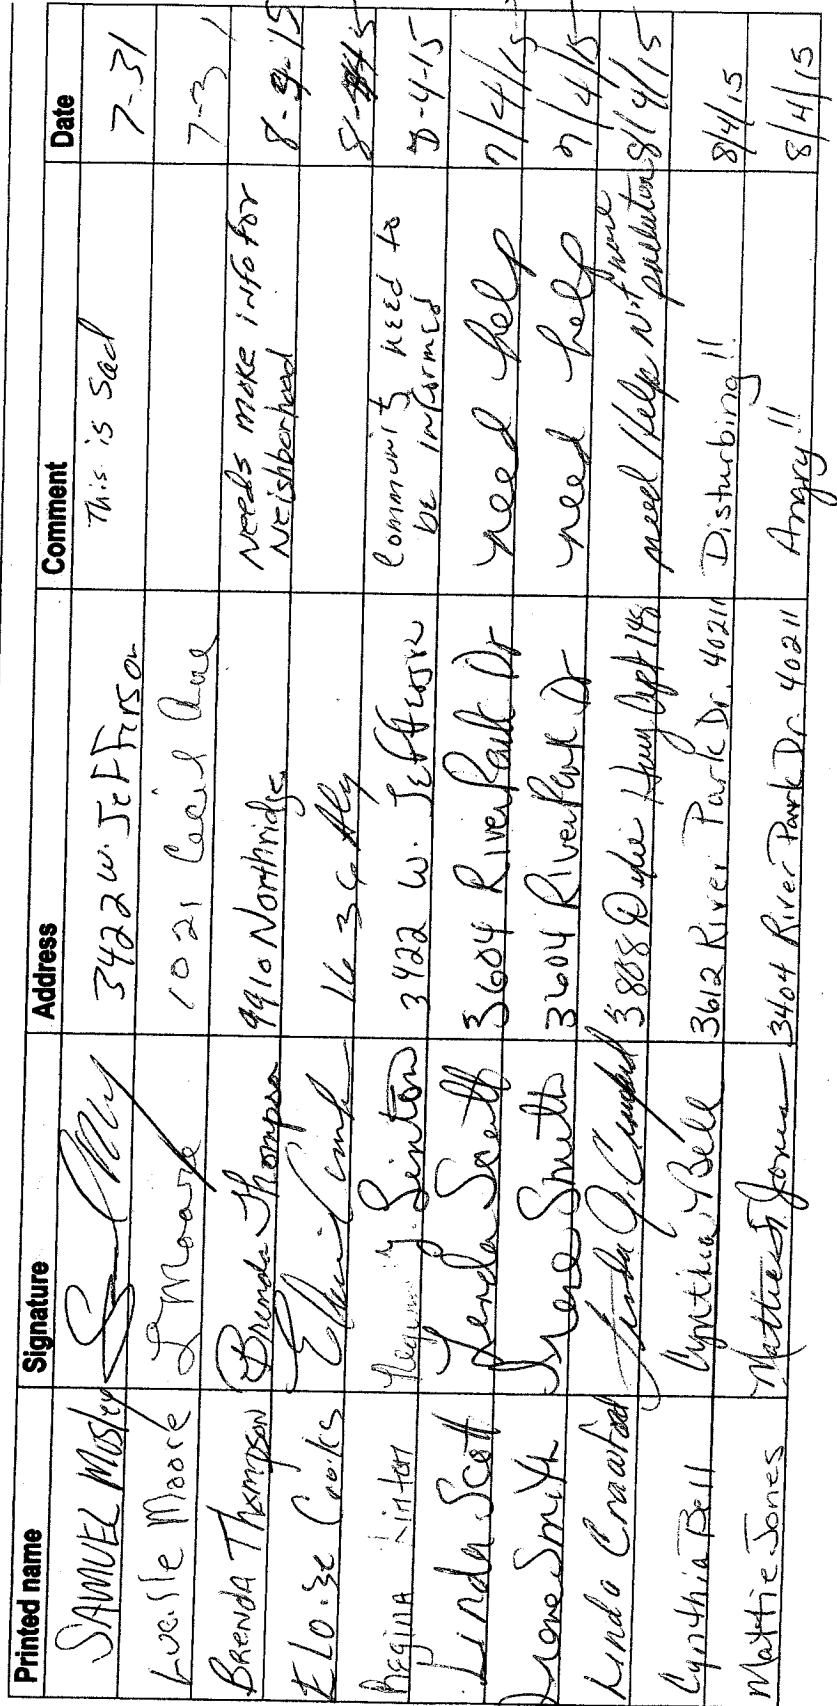 Printed name Signature Address Comment Date
SAMUEL Mosley 3422 W. Jefferson This is Sad 7-31
Lucille Moore L Moore 1021 Cecil Ave 7-31
Brenda Thompson Brenda Thompson 9910 Northridge Needs more info for
Neighborhood 8-4-15
ELOise Cooks 1636 Aly 8-4-15
Regina Linton Regina Y. Linton 3422 W. Jefferson Community need to
be informed 8-4-15
Linda Scott Linda Scott 3604 River Park Dr need help 7/4/15
Irene Smith Irene Smith 3604 River Park Dr need help 7/4/15
Linda Crawford Linda J. Crawford 3808 Dixie Hwy Apt 148 need Help Not more
pollution 8/4/15
Cynthia Bell Cynthia Bell 3612 River Park Dr. 40211 Disturbing!! 8/4/15
Mattie Jones Mattie Jones 3404 River Park Dr. 40211 Angry!! 8/4/15